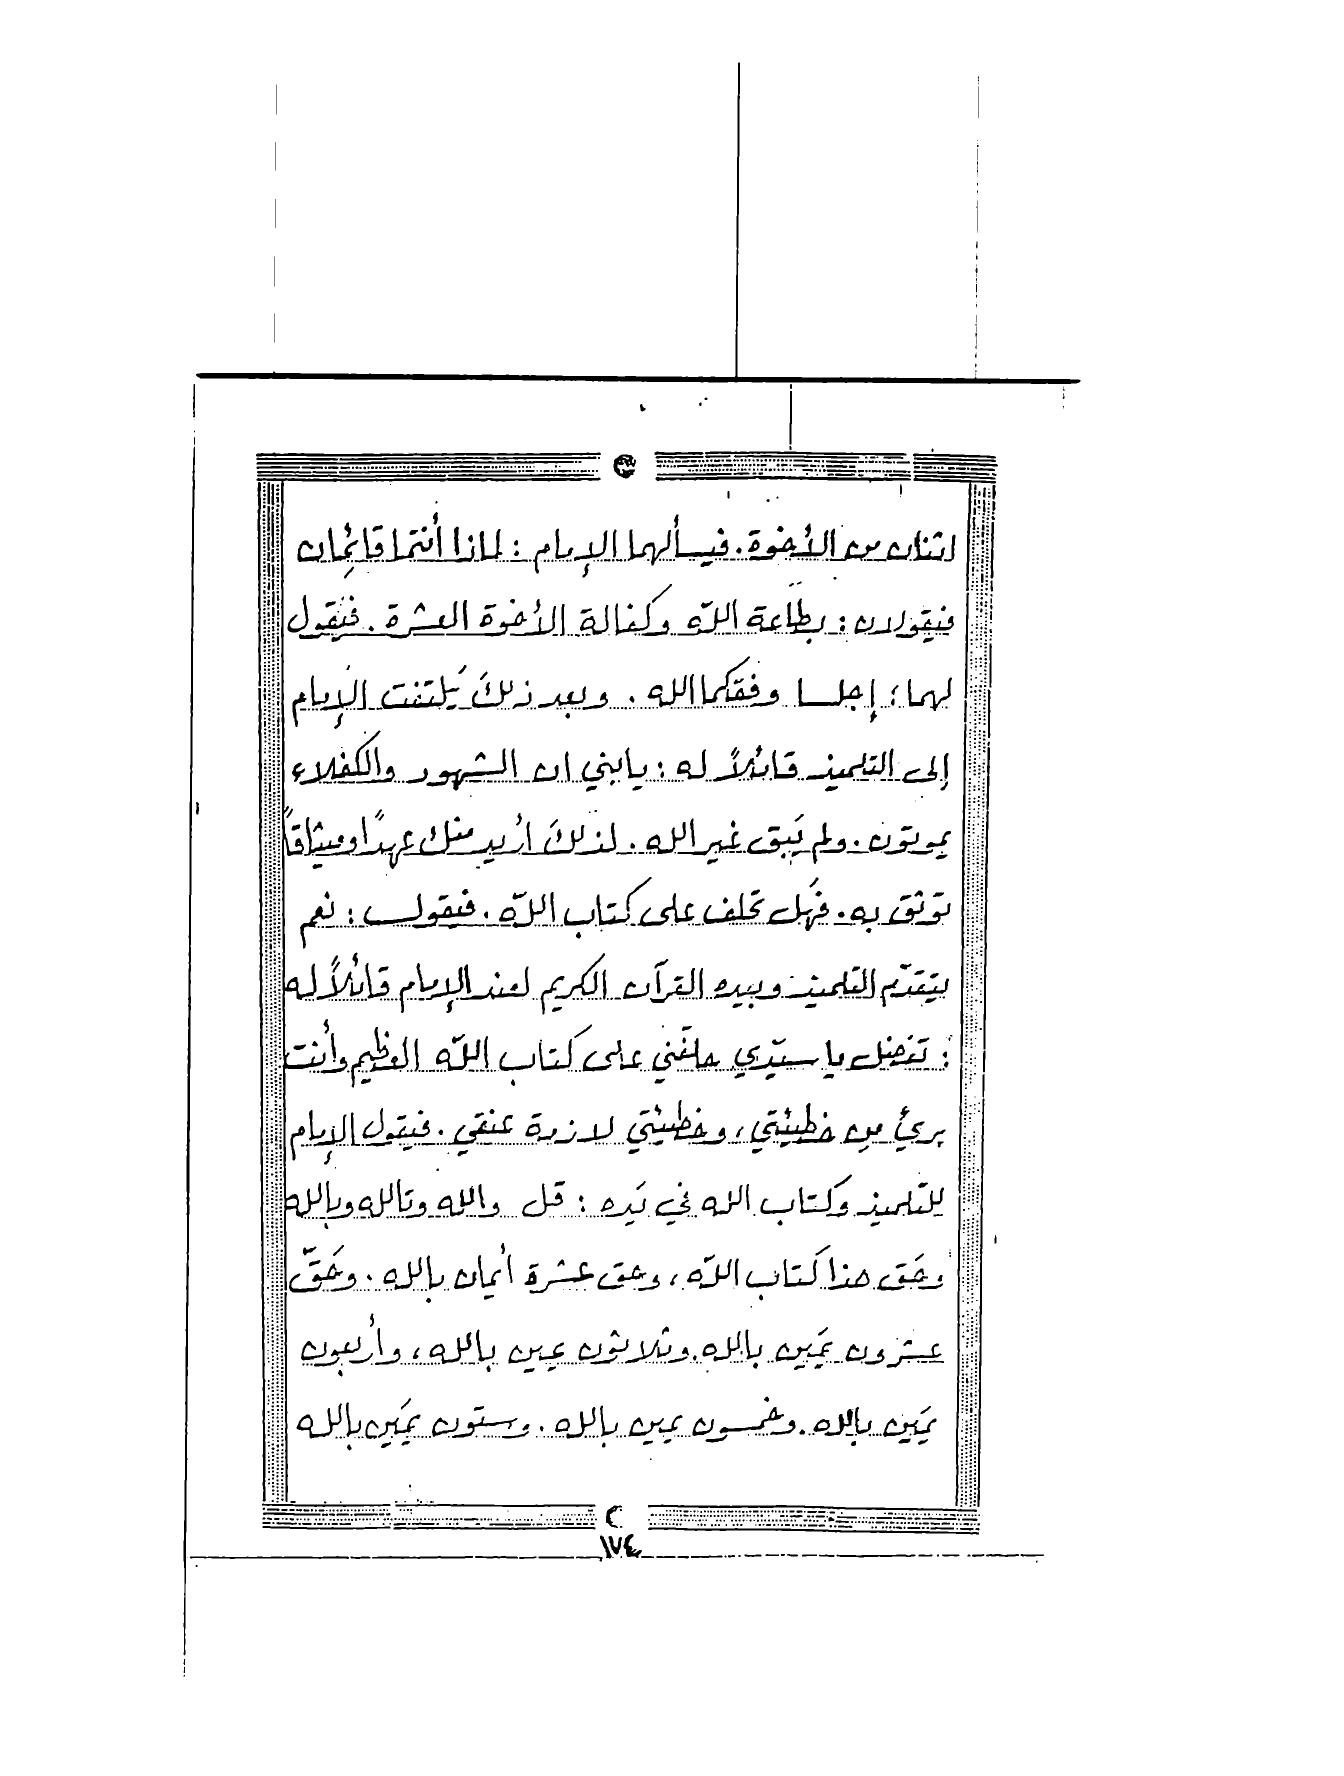 اثنان من الأخوة. فيسألهما الإمام : لماذا أنتما قائمان
فيقولان : بطاعة اللّه وكفالة الأخوة العشرة. فيقول
لهما : إجلسا وفقكما الله. وبعد ذلكَ يَلتفت الإمام
إلى التلميذ قائلاً له : يا بني ان الشهود والكفلاء
يموتون. ولم يَبق غير الله. لذلكَ أريد منك عهداً وميثاقاً
توثق به. فهَل تحلف على كتاب اللّه. فيقول : نعم
يتقدّم التلميذ وبيده القرآن الكريم لعند الإمام قائلاً له
: تفضل يا سيّدي حلفني على كتاب اللّه العظيم وأنت
بريٌ من خطيئتي، وخطيئتي لازمة عنقي. فيقول الإمام
للتلميذ وكتاب الله في يَده : قل والله وتالله وبالله
وحَق هذا كتاب اللّه، وحق عشرة أيمان بالله. وحَقّ
عشرون يمَين بالله. وثلاثون يمين بالله، وأربعون
يمَين بالله. وخمسون يمين بالله. وستون يمَين بالله
١٧٤